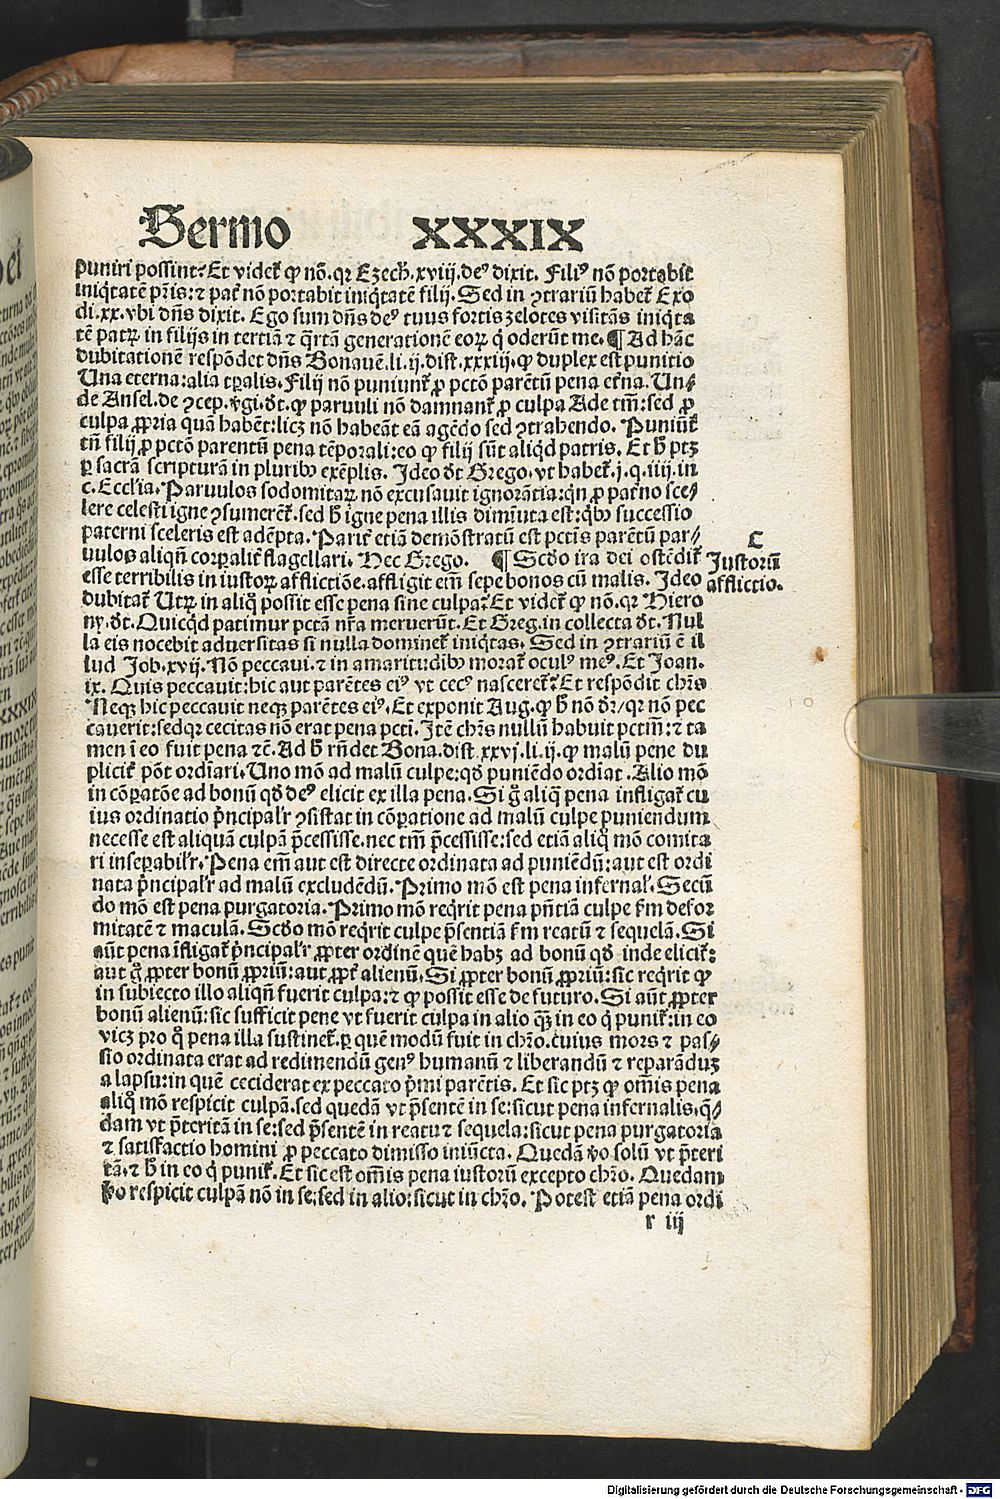 Sermo XXXIX
puniri possint? Et videt᷑ ꝙ nō. qꝛ Ezech̄. xviij. deꝰ dixit. Filiꝰ nō portabit
iniq̇tatē pr̄is: ⁊ pat᷑ nō portabit iniq̇tatē filij. Sed in ꝯtrariū habet᷑ Exo
di. xx. vbi dn̄s dixit. Ego sum dn̄s deꝰ tuus fortis zelotes visitās iniq̇ta
tē patꝝ in filijs in tertiā ⁊ q̇rtā generationē eoꝝ q̇ oderūt me. ¶ Ad hāc
dubitationē respōdet dn̄s Bonauē. li. ij. dist. xxxiij. ꝙ duplex est punitio
Una eterna: alia tꝑalis. Filij nō puniunt᷑ ꝓ pctō parētū pena et̄na. Un-
de Ansel. de ꝯcep. v̇gi. dt̄. ꝙ paruuli nō damnant᷑ ꝓ culpa Ade tm̄: sed ꝓ
culpa ꝓpria quā habēt: licꝫ nō habeāt eā agēdo sed ꝯtrahendo. Puniūt᷑
tn̄ filij ꝓ pctō parentū pena tēporali: eo ꝙ filij sūt aliq̇d patris. Et h̄ ptꝫ
ꝑ sacrā scripturā in pluribꝰ exēplis. Ideo dt̄ Grego. vt habet᷑. j. q. iiij. in
c. Ecclīa. Paruulos sodomitaꝝ nō excusauit ignorātia: qn̄ ꝓ pat̄no sce-
lere celesti igne ꝯsumerēt᷑. sed h̄ igne pena illis diminuta est: qbꝰ successio
paterni sceleris est adēpta. Parit᷑ etiā demōstratū est pctīs parētū par-
uulos aliqn̄ corꝑalit᷑ flagellari. Hec Grego. ¶ Scd̄o ira dei ostēdit᷑
esse terribilis in iustoꝝ afflictiōe. affligit em̄ sepe bonos cū malis. Ideo
dubitat᷑ Utꝝ in aliq̊ possit esse pena sine culpa? Et videt᷑ ꝙ nō. qꝛ Hiero
ny. dt̄. Quicq̇d patimur pctā nr̄a meruerūt. Et Greg. in collecta dt̄. Nul
la eis nocebit aduersitas si nulla dominet᷑ iniq̇tas. Sed in ꝯtrariū ē il
lud Job. xvij. Nō peccaui. ⁊ in amaritudībꝰ morat᷑ oculꝰ meꝰ. Et Joan.
ix. Quis peccauit: hic aut parētes eiꝰ vt cecꝰ nasceret᷑? Et respōdit chr̄s
Neqꝫ hic peccauit neqꝫ parētes eiꝰ. Et exponit Aug. ꝙ h̄ nō dr̄/ qꝛ nō pec
cauerit: sed qꝛ cecitas nō erat pena pctī. Itē chr̄s nullū habuit pctm̄: ⁊ ta
men ī eo fuit pena ⁊c̄. Ad h̄ rn̄det Bona. dist. xxvj. li. ij. ꝙ malū pene du
plicit᷑ pōt ordīari. Uno mō ad malū culpe: qd̄ puniēdo ordīat. Alio mō
in cōꝑatōe ad bonū qd̄ deꝰ elicit ex illa pena. Si g̊ aliq̄ pena infligat᷑ cu
ius ordinatio p̄ncipalr̄ ꝯsistat in cōꝑatione ad malū culpe puniendum
necesse est aliquā culpā p̄cessisse. nec tm̄ p̄cessisse: sed etiā aliq̊ mō comita
ri inseꝑabilr̄. Pena em̄ aut est directe ordinata ad puniēdū: aut est ordi
nata p̄ncipalr̄ ad malū excludēdū. Primo mō est pena infernal̄. Secū
do mō est pena purgatoria. Primo mō reqrit pena p̄n̄tiā culpe fm̄ defor
mitatē ⁊ maculā. Scd̄o mō reqrit culpe p̄sentiā fm̄ reatū ⁊ sequelā. Si
aūt pena īfligat᷑ p̄ncipalr̄ ꝓpter ordinē quē habꝫ ad bonū qd̄ inde elicit᷑:
aut g̊ ꝓpter bonū ꝓpriū: aut ꝓpt᷑ alienū. Si ꝓpter bonū ꝓpriū: sic reqrit ꝙ
in subiecto illo aliqn̄ fuerit culpa: ⁊ ꝙ possit esse de futuro. Si aūt ꝓpter
bonū alienū: sic sufficit pene vt fuerit culpa in alio qꝫ̄ in eo q̇ punit᷑: in eo
vicꝫ pro q̊ pena illa sustinet᷑. ꝑ quē modū fuit in chr̄o. cuius mors ⁊ pas-
sio ordinata erat ad redimendū genꝰ humanū ⁊ liberandū ⁊ reparādūꝫ
a lapsu: in quē ceciderat ex peccato p̄mi parētis. Et sic ptꝫ ꝙ om̄is pena
aliq̊ mō respicit culpā. sed quedā vt p̄sentē in se: sicut pena infernalis. q̄-
dam vt p̄teritā in se: sed p̄sentē in reatu ⁊ sequela: sicut pena purgatoria
⁊ satisfactio homini ꝓ peccato dimisso iniūcta. Quedā v̊o solū vt p̄teri
tā. ⁊ h̄ in eo q̇ punit᷑. Et sic est om̄is pena iustorū excepto chr̄o. Quedam
v̊o respicit culpā nō in se: sed in alio: sicut in chr̄o. Potest etiā pena ordi
r iij
C
Justorū
afflictio.
Digitalisierung gefördert durch die Deutsche Forschungsgemeinschaft - DFG